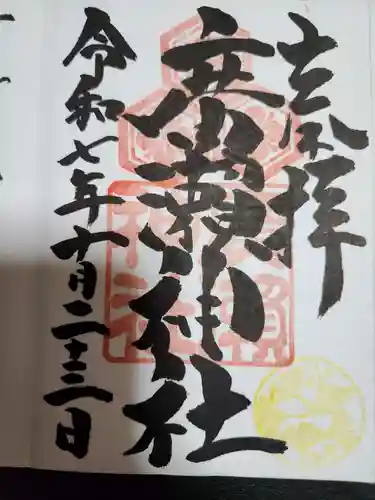 奉拝
廣瀬神社
令和七年十月二十三日